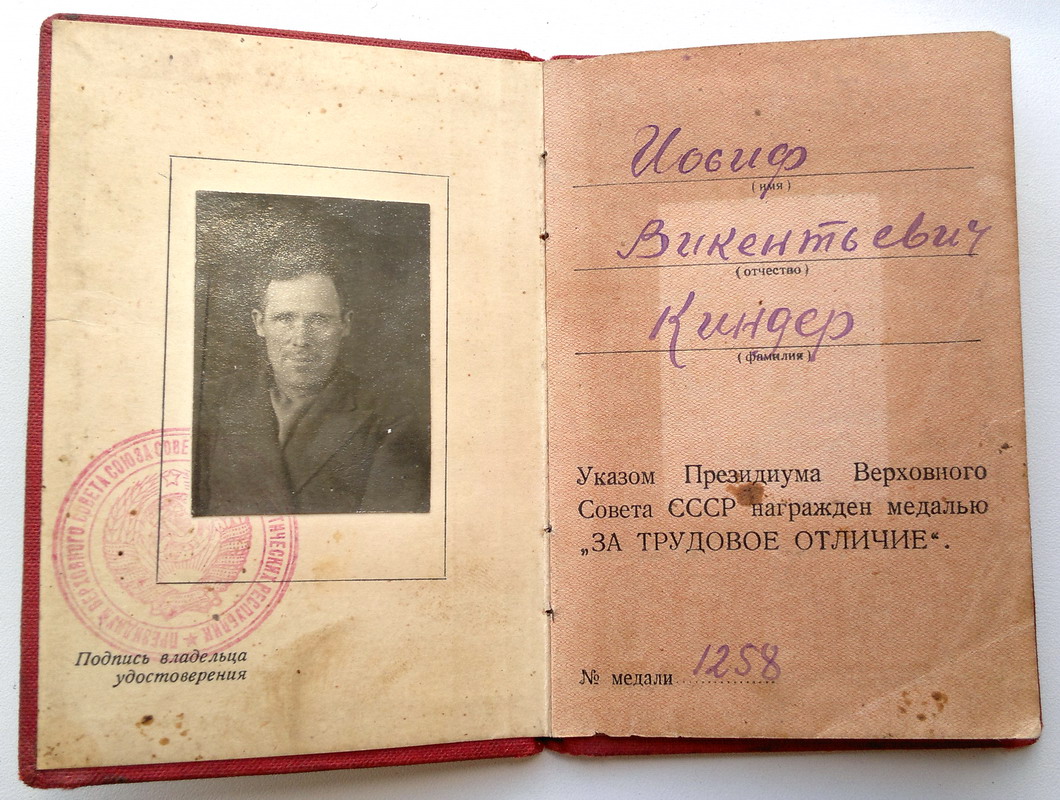 ПРЕЗИДИУМ ВЕРХОВНОГО СОВЕТА СОЮЗА СОВЕ
ТИЧЕСКИХ РЕСПУБЛИК
Подпись владельца
удостоверения
Иосиф
(имя)
Викентьевич
(отчество)
Киндер
(фамилия)
Указом Президиума Верховного
Совета СССР награжден медалью
„ЗА ТРУДОВОЕ ОТЛИЧИЕ“.
№ медали 1258